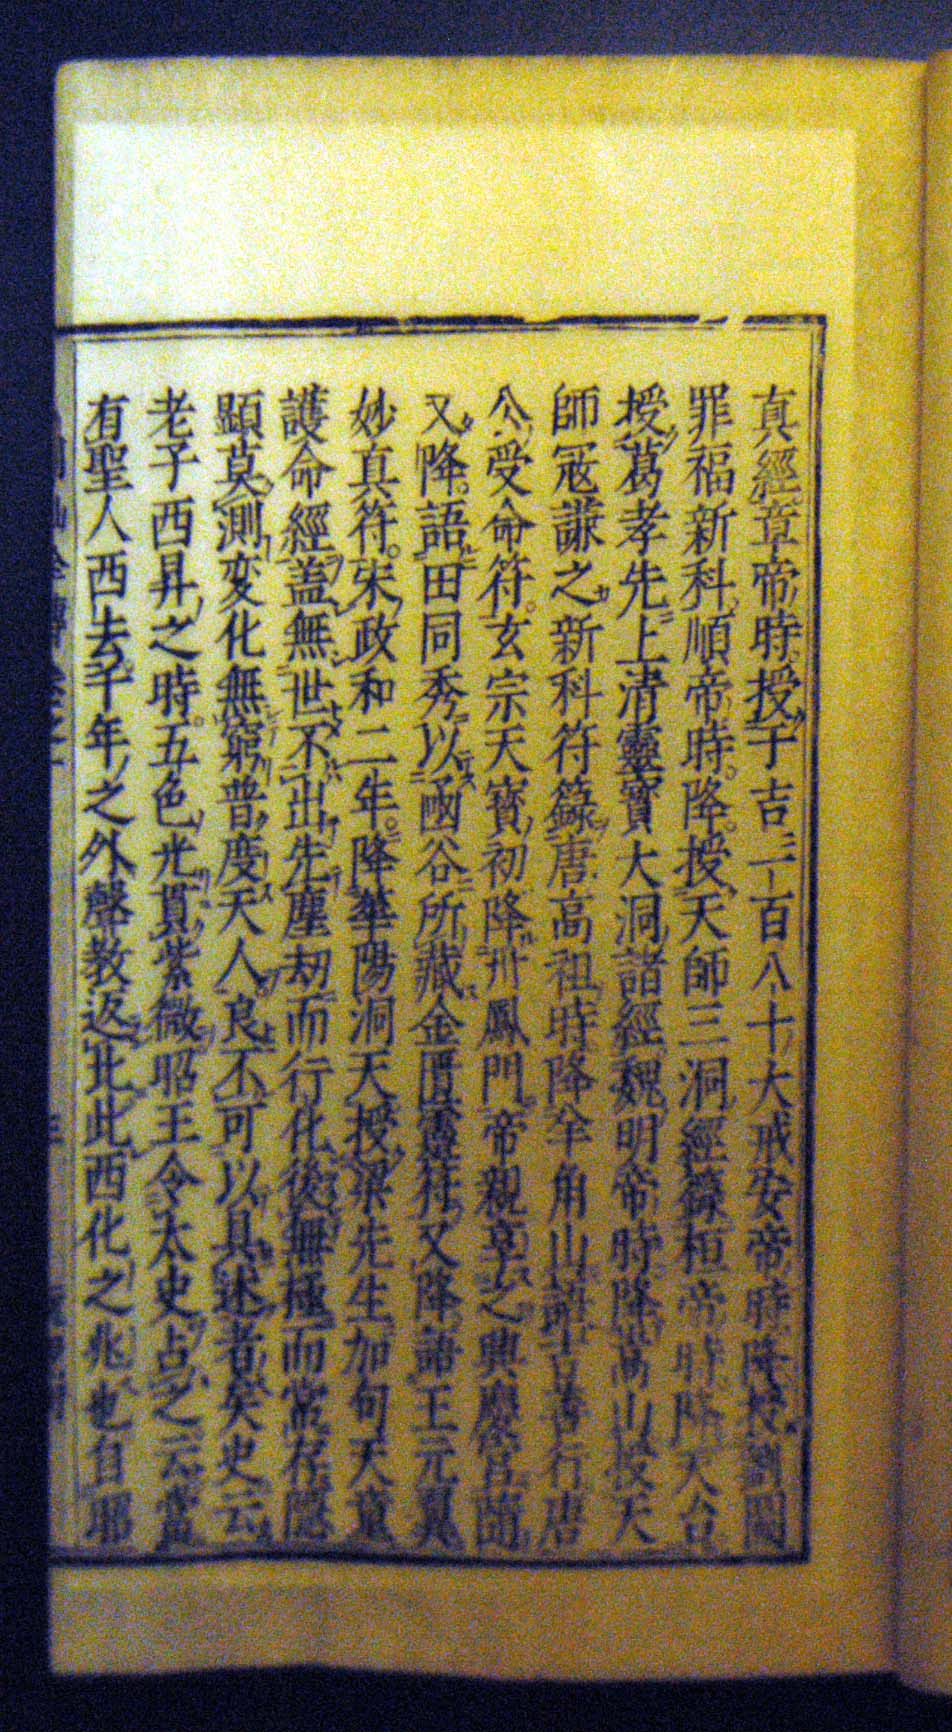 真經章帝時授于吉一百八十大戒安帝時降授劉圖
罪福新科順帝時降授天師三洞經籙桓帝時降天台
授葛孝先上清靈寶大洞諸經魏明帝時降嵩山授天
師冦謙之新科符籙唐高祖時降羊角山語吉善行唐
公受命符玄宗天寳初降丹鳳門帝親享之興慶宮簡
又降語田同秀以函谷所藏金匱靈符又降語王元翼
妙真符宋政和二年降華陽洞天授梁先生加句天童
護命經蓋無世不出先塵劫而行化後無極而常存隱
顕莫測変化無窮普度天人良不可以具述者矣史云
老子西昇之時五色光貫紫微昭王令太史占之云當
有聖人西去千年之外聲教返此此西化之兆也自耶